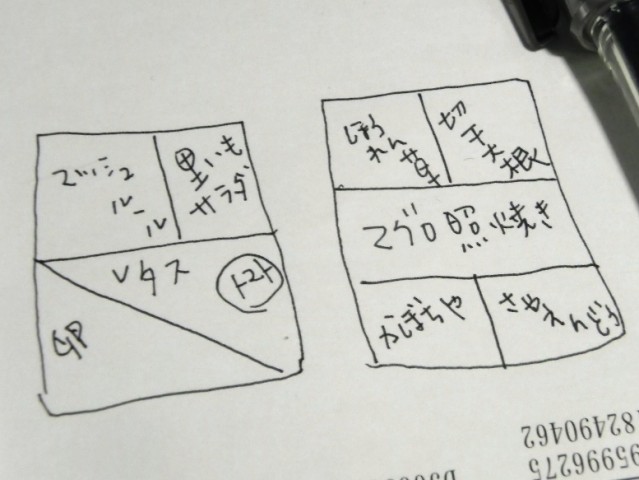 マッシュ
ルーム
里いも
サラダ
レタス
トマト
卵
ほうれん草
切干大根
マグロ照焼き
かぼちゃ
さやえんどう
82490462
95996275